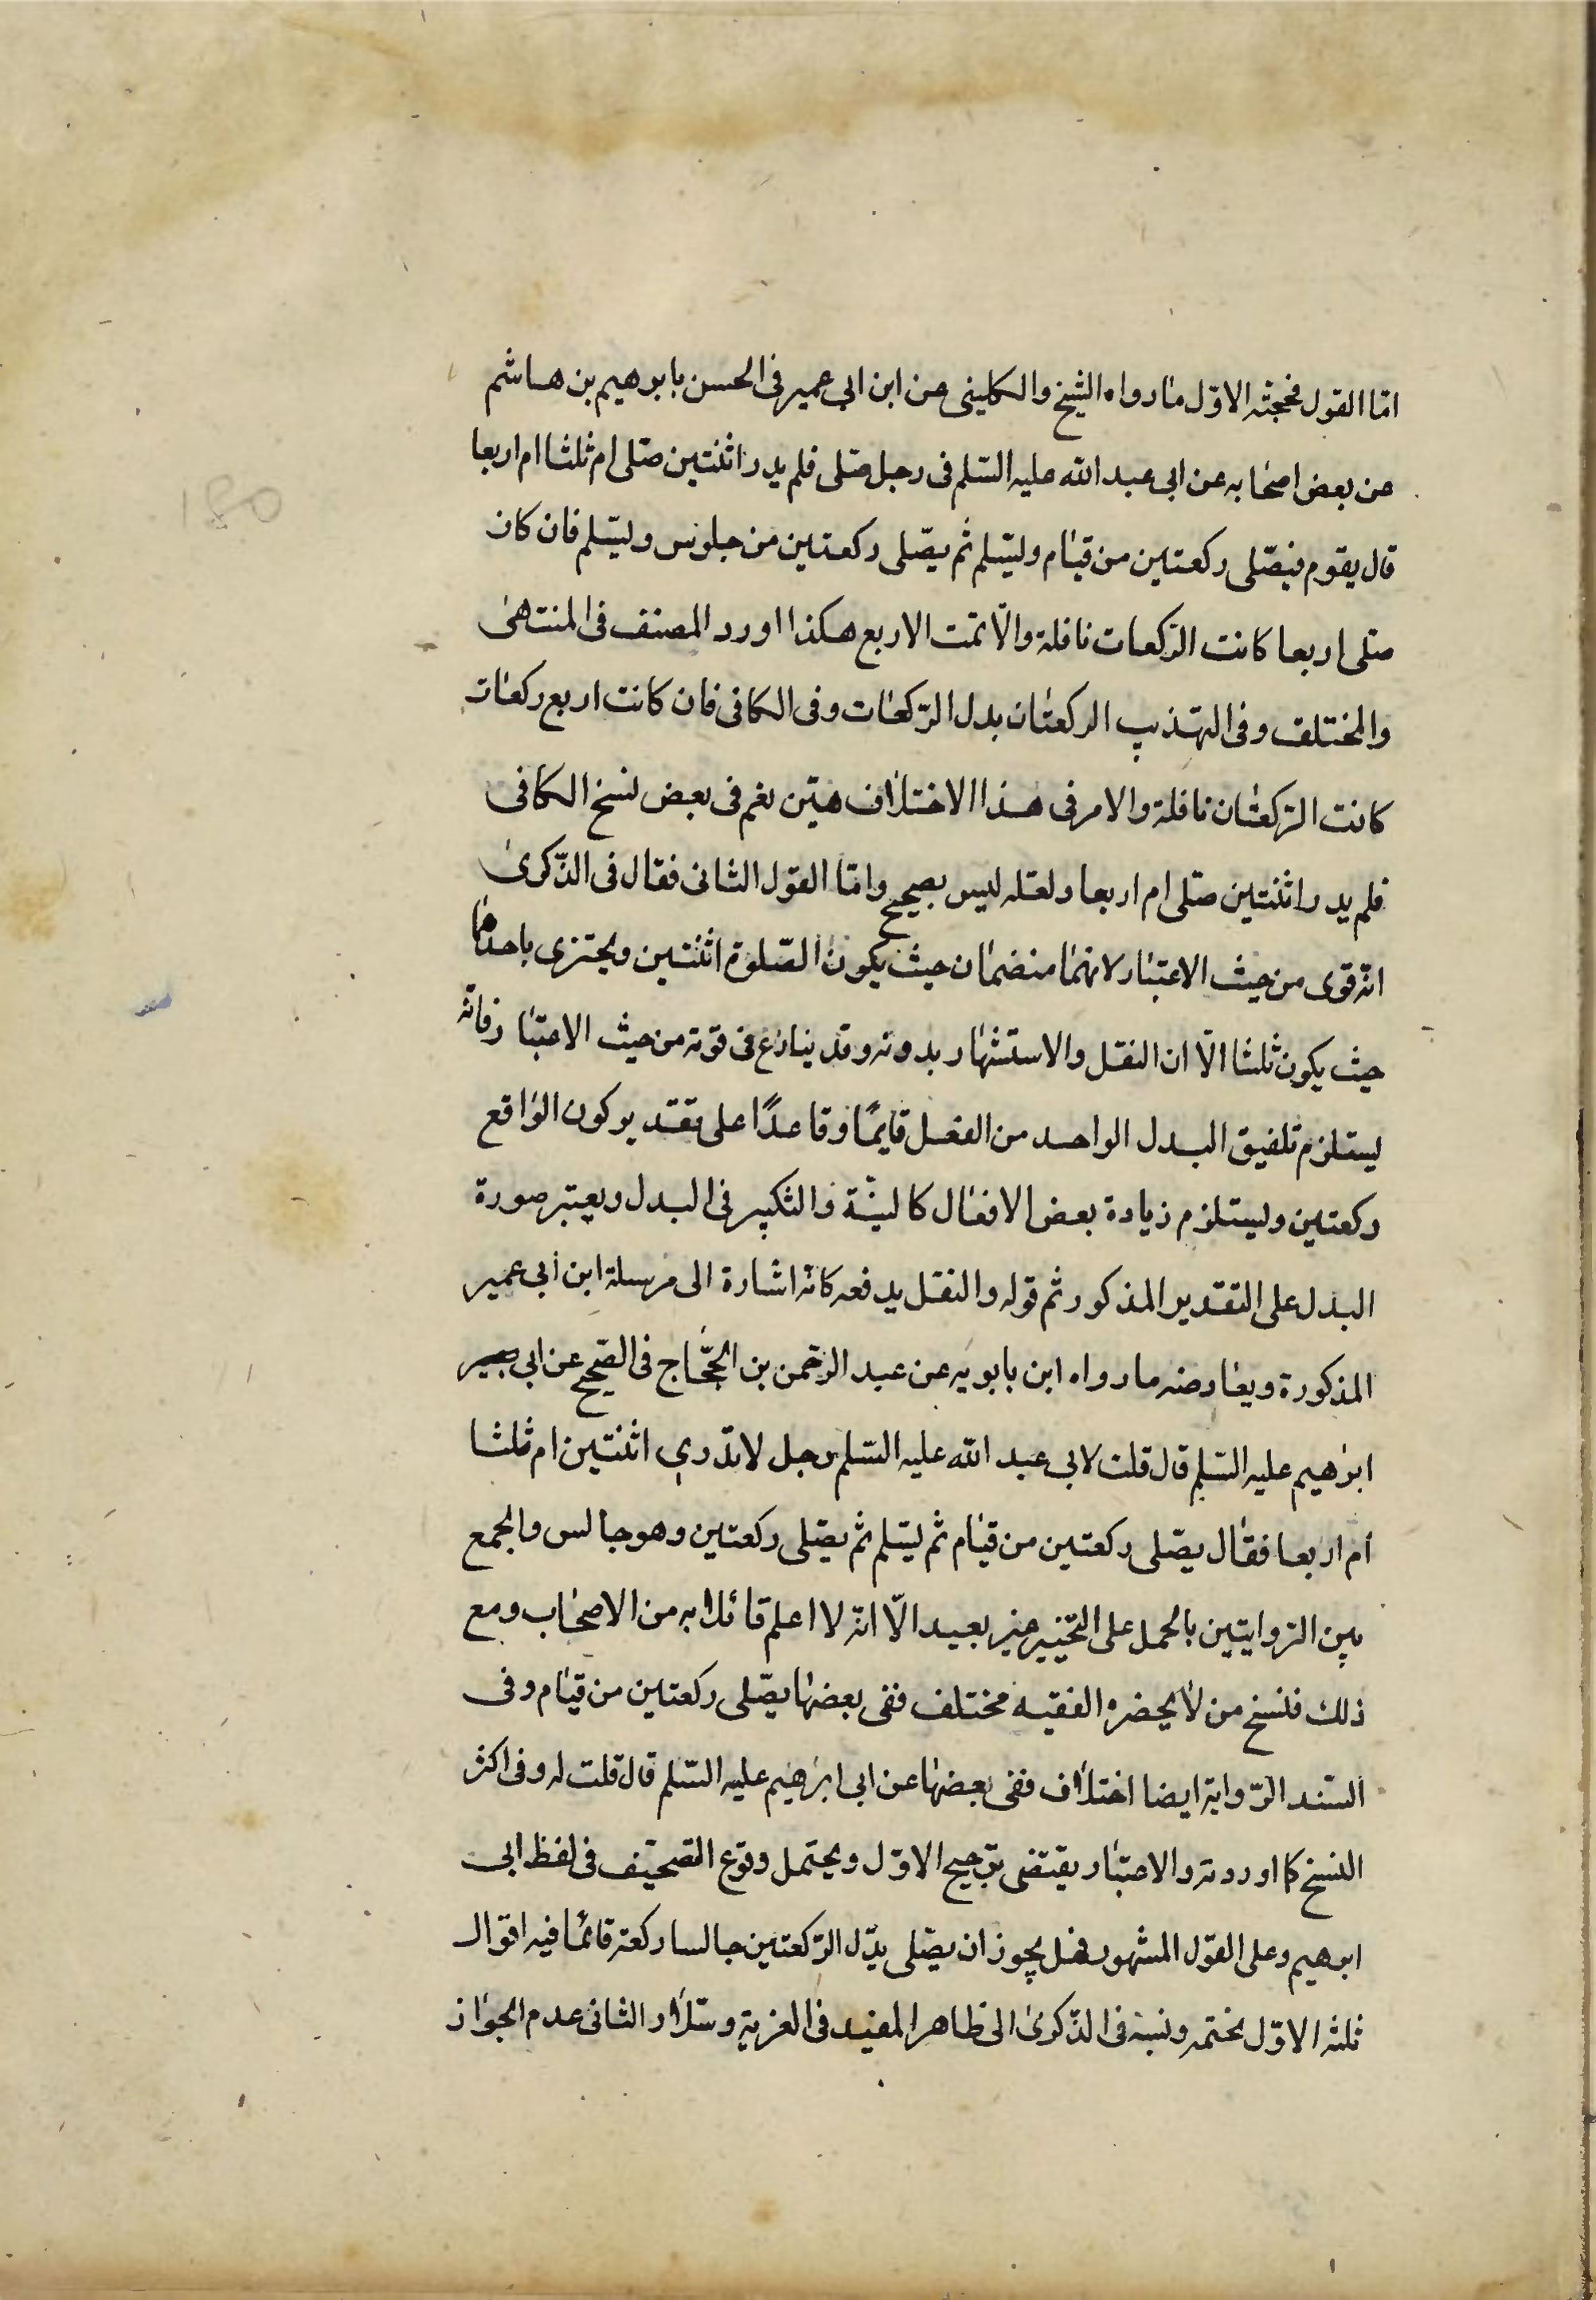 امّا القول فحجته الاوّل ما رواه الشيخ والكلينى عن ابن ابي عمير فى الحسن بابرهيم بن هاشم
عن بعض اصحابه عن ابى عبد الله عليه السّلم فى رجل صلى فلم يدر اثنتين صلى ام ثلثا ام اربعا
قال يقوم فيصّلى ركعتين من قيام وليسّلم ثم يصّلى ركعتين من جلوس وليسّلم فان كان
صلى اربعا كانت الركعات نافلة والّا تمت الاربع هكذا اورد المصنف فى المنتهى
والمختلف وفى التهذيب الركعتان بدل الرّكعات وفى الكافى فان كانت اربع ركعات
كانت الرّكعتان نافلة والامر فى هذا الاختلاف هيّن نعم فى بعض نسخ الكافى
فلم يدر اثنتين صلى ام اربعا ولعله ليس بصحيح وامّا القول الثانى فقال فى الذّكرى
انه قوى من حيث الاعتبار لانهما منضمان حيث يكون الصّلوة اثنتين ويجتزى باحدهما
حيث يكون ثلثا الّا ان النقل والاستشهار بدونه وقد ينازع فى قوته من حيث الاعتبار فانه
يستلزم تلفيق البدل الواحد من الفعل قايمًا وقاعدًا على تقدير كون الواقع
ركعتين وليستلزم زيادة بعض الافعال كالنيّة والتكبير فى البدل ويعتبر صورة
البدل على التقدير المذكور ثم قوله والنقل يدفعه كانه اشارة الى مرسلة ابن أبي عمير
المذكورة ويعارضه ما رواه ابن بابويه عن عبد الرّحمن بن الحجّاج فى الصّحيح عن ابي
ابرهيم عليه السّلم قال قلت لابي عبد الله عليه السّلم رجل لا يدري اثنتين ام ثلثا
ام اربعا فقال يصّلى ركعتين من قيام ثم ليسّلم ثم يصّلى ركعتين وهو جالس والجمع
بين الروايتين بالحمل على التخيير غير بعيد الّا انه لا اعلم قائلا به من الاصحاب ومع
ذلك فنسخ من لا يحضره الفقيه مختلف ففى بعضها يصّلى ركعتين من قيام وفى
السّند الرّواية ايضا اختلاف ففى بعضها عن ابى ابرهيم عليه السّلم قال قلت له وفى اكثر
النسخ كما اوردته والاعتبار يقتضى ترجيح الاوّل ويحتمل وقوع التصحيف فى لفظ ابى
ابرهيم وعلى القول المشهور فهل يجوز ان يصّلى بدّل الرّكعتين جالسا ركعة قائما فيه اقوال
ثلثه الاوّل تحتمه ونسبه فى الذّكرى الى ظاهر المفيد فى العزية وسّلار الثانى عدم الجواز
180